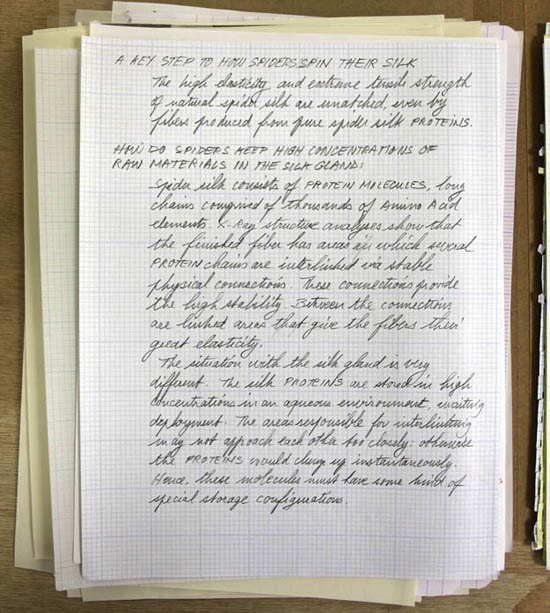 A KEY STEP TO HOW SPIDERS SPIN THEIR SILK
The high elasticity and extreme tensile strength
of natural spider silk are unatched, even by
fibers produced from pure spider silk PROTEINS.
HOW DO SPIDERS KEEP HIGH CONCENTRATIONS OF
RAW MATERIALS IN THE SILK GLAND:
Spider silk consists of PROTEIN MOLECULES, long
chains comprised of thousands of Amino Acid
elements. X-Ray structure analyses show that
the finished fiber has areas in which several
PROTEIN chains are interlinked via stable
physical connections. These connections provide
the high stability. Between the connections
are linked areas that give the fibers their
great elasticity.
The situation with the silk gland is very
different. The silk PROTEINS are stored in high
concentrations in an aqueous environment, awaiting
deployment. The areas responsible for interlinking
may not approach each other too closely: otherwise
the PROTEINS would clump up instantaneously.
Hence, these molecules must have some kind of
special storage configuration.